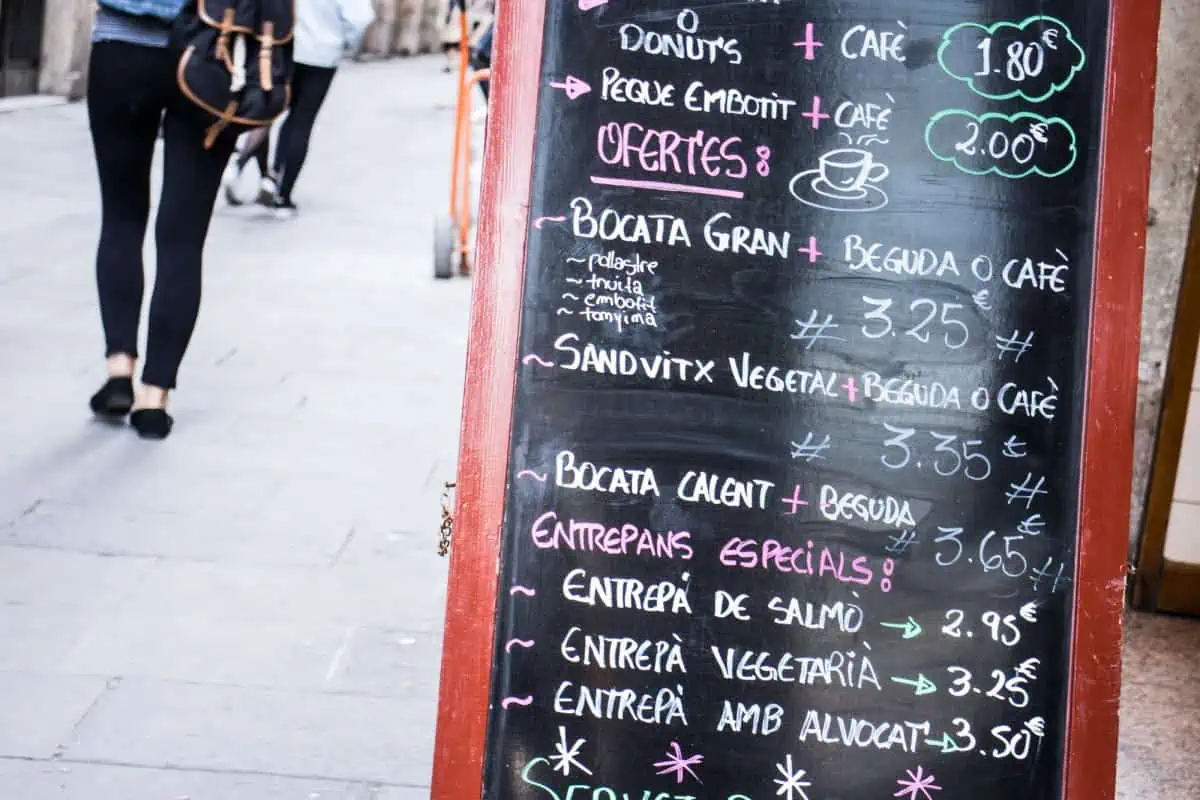 DONUT'S + CAFÈ 1.80€
PEQUE EMBOTIT + CAFÈ 2.00€
OFERTES:
~ BOCATA GRAN + BEGUDA O CAFÈ
~ pollastre
~ truita
~ embotit
~ tonyina
# 3.25€ #
~ SANDVITX VEGETAL + BEGUDA O CAFÈ
# 3.35€ #
~ BOCATA CALENT + BEGUDA
# 3.65€ #
ENTREPANS ESPECIALS:
~ ENTREPÀ DE SALMÒ → 2.95€
~ ENTREPÀ VEGETARIÀ → 3.25€
~ ENTREPÀ AMB ALVOCAT → 3.50€